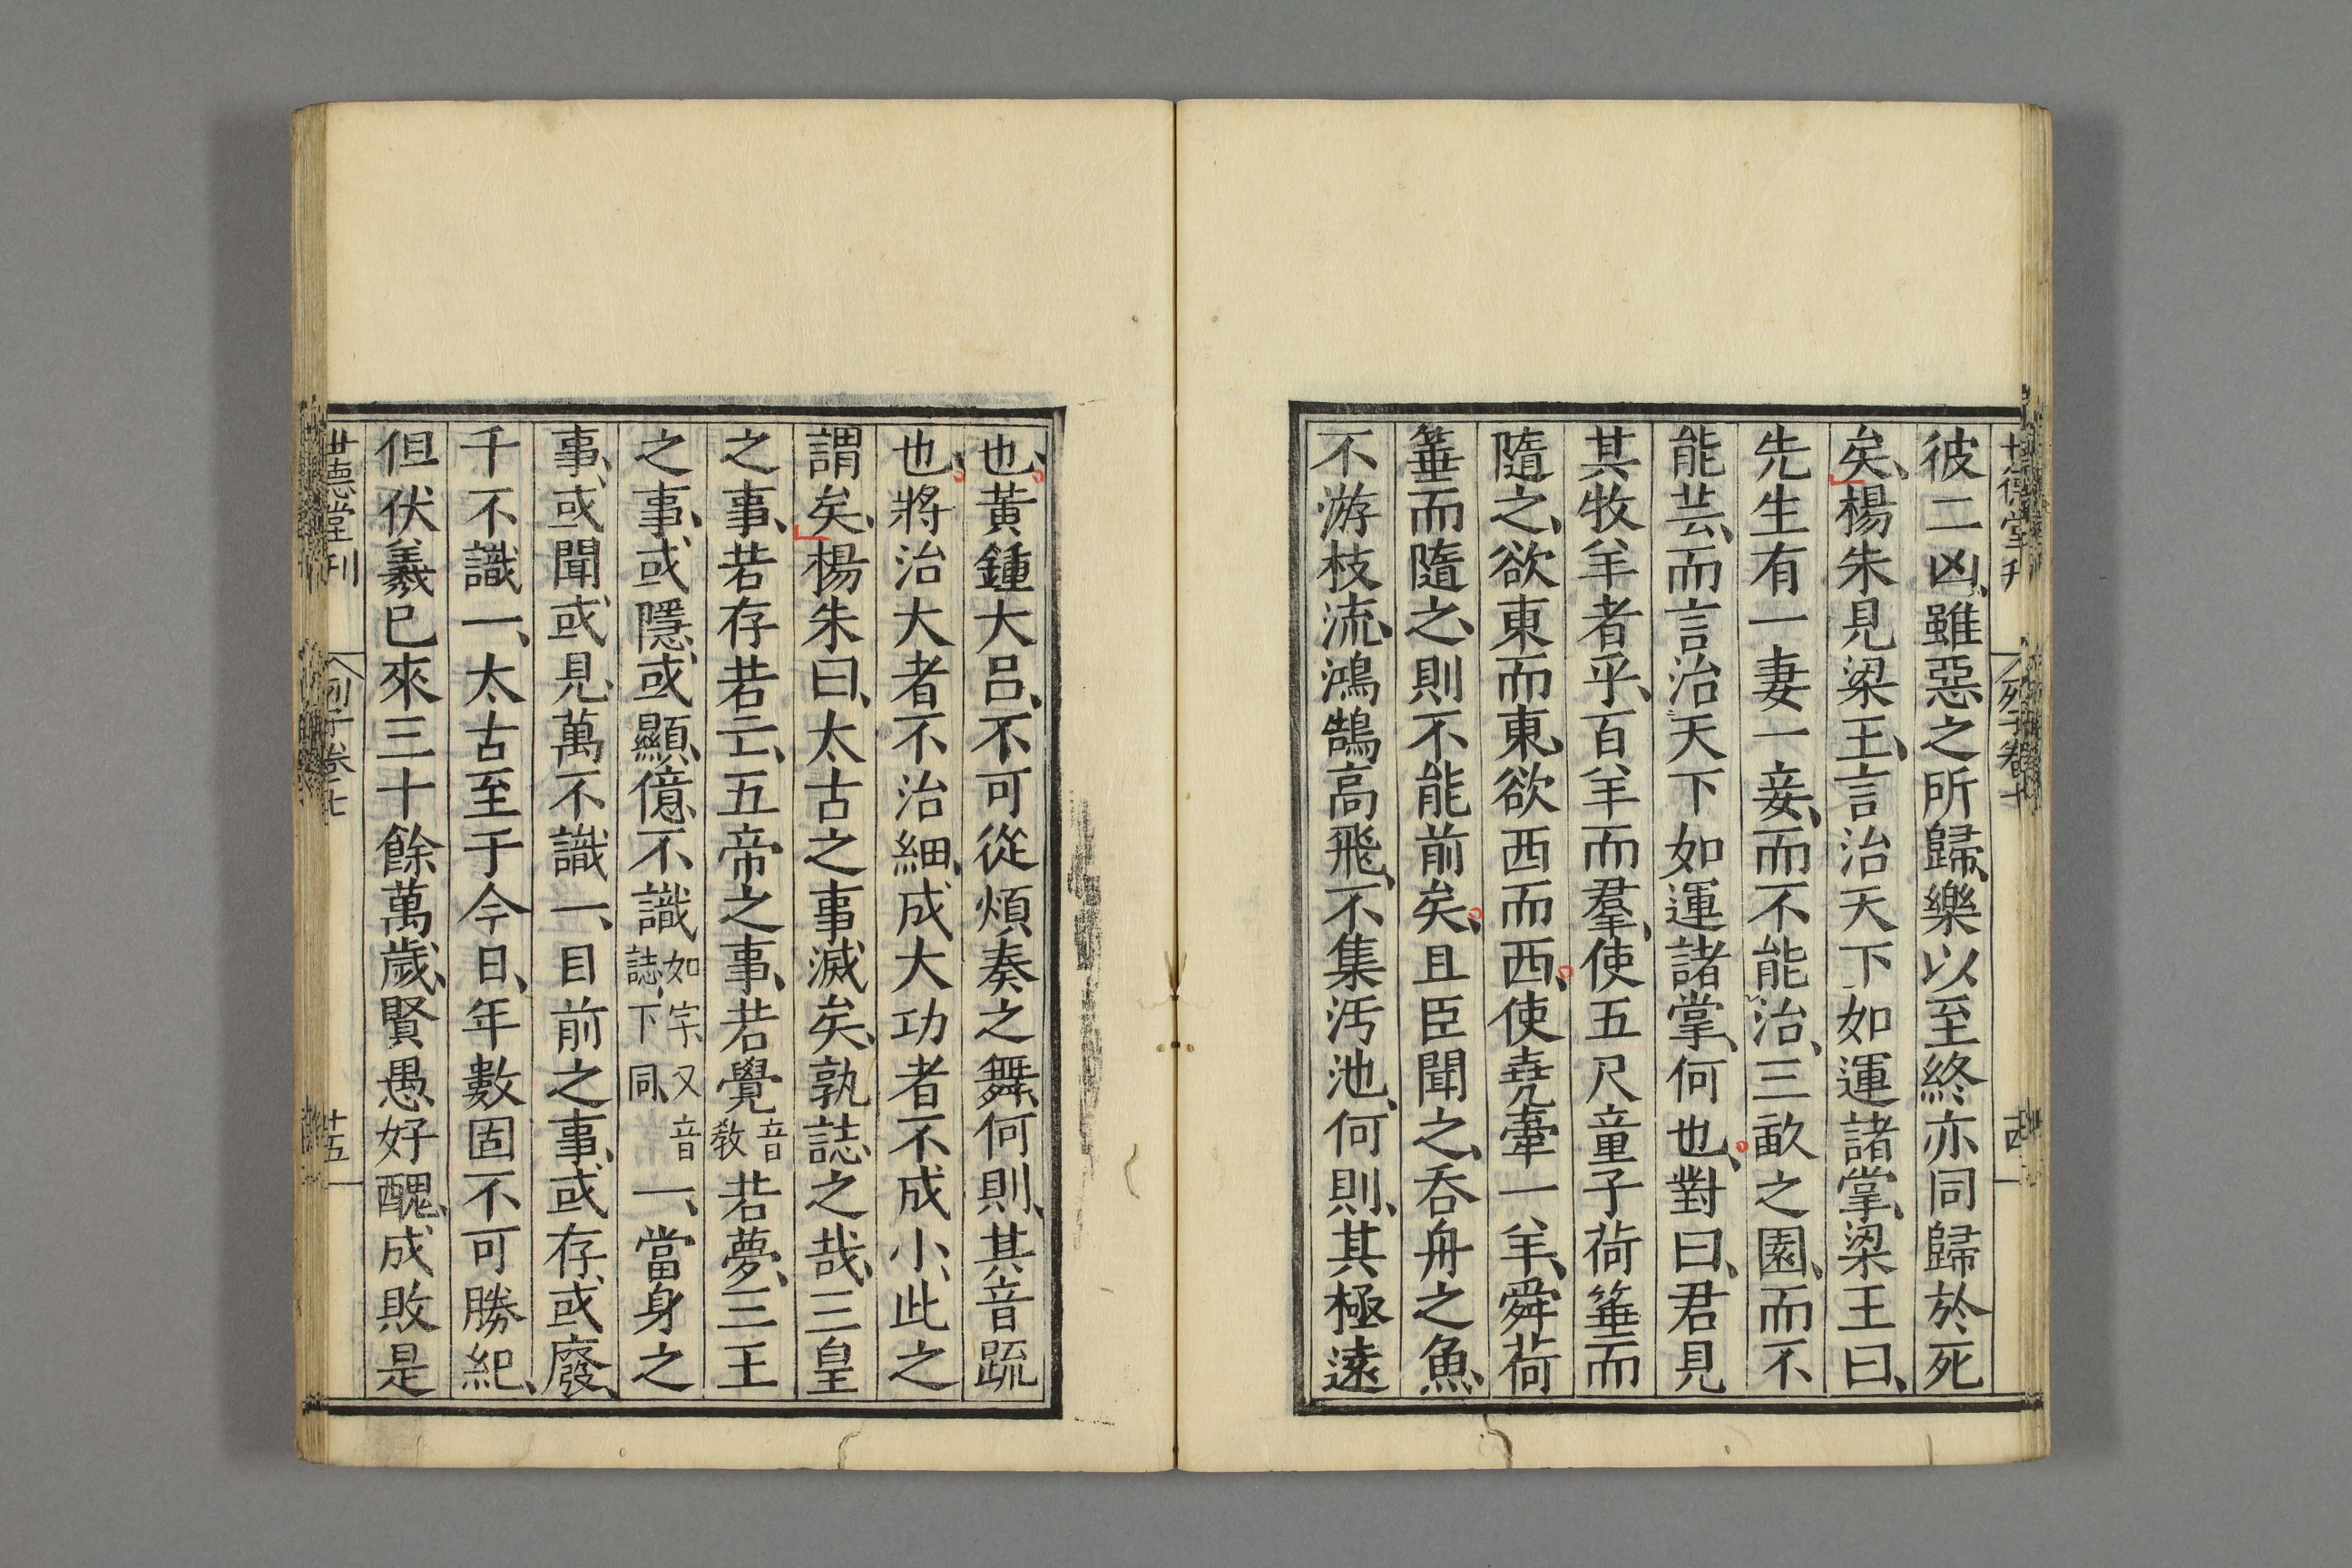 世德堂刊
列子卷七
十四
彼二凶、雖惡之所歸、樂以至終亦同歸於死
矣、楊朱見梁王、言治天下如運諸掌、梁王曰、
先生有一妻一妾、而不能治、三畝之園、而不
能芸、而言治天下如運諸掌、何也、對曰、君見
其牧羊者乎、百羊而羣、使五尺童子荷箠而
隨之、欲東而東、欲西而西、使堯牽一羊、舜荷
箠而隨之、則不能前矣、且臣聞之、吞舟之魚、
不游枝流、鴻鵠高飛、不集汚池、何則、其極遠
也、黃鍾大呂、不可從煩奏之舞、何則、其音疏
也、將治大者不治細、成大功者不成小、此之
謂矣、楊朱曰、太古之事滅矣、孰誌之哉、三皇
之事、若存若亡、五帝之事、若覺音教若夢、三王
之事、或隱、或顯、億不識如字、又音誌、下同、一、當身之
事、或聞或見、萬不識一、目前之事、或存或廢、
千不識一、太古至于今日、年數固不可勝紀、
但伏羲已來三十餘萬歲、賢愚、好醜、成敗是
世德堂刊
列子卷七
十五